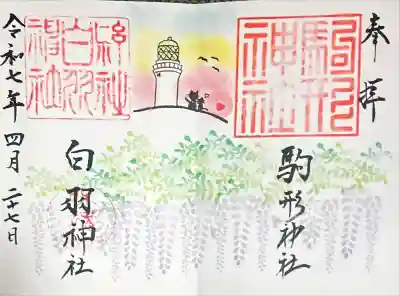 奉拝
駒形
神社
駒形神社
白羽
神社
白羽神社
令和七年四月二十七日